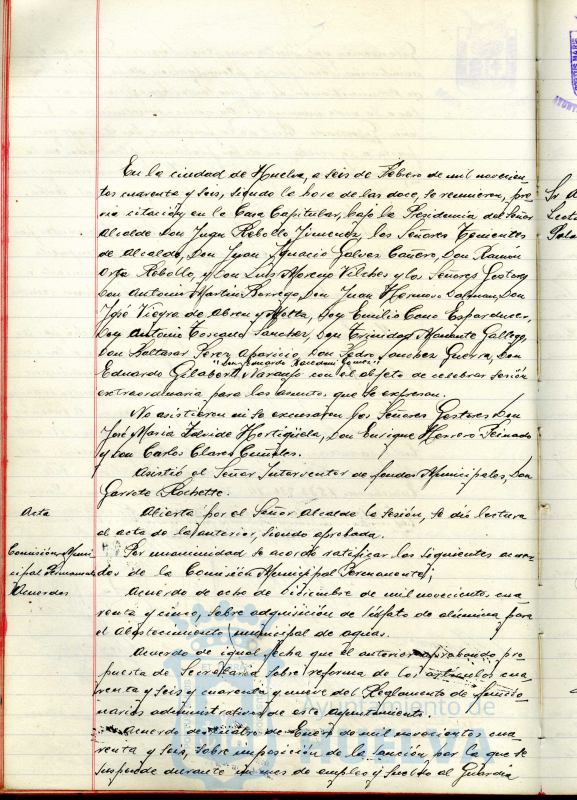 En la ciudad de Huelva, a seis de Febrero de mil novecien-
tos cuarenta y seis, siendo la hora de las doce, se reunieron, pre-
via citación, en la Casa Capitular, bajo la Presidencia del Señor
Alcalde Don Juan Rebollo Jimenez, los Señores Tenientes
de Alcalde, Don Juan Ignacio Galvez Cañero, Don Ramón
Orta Rebollo, y Don Luis Moreno Vilches y los Señores Gestores
Don Antonio Martín Borrego, Don Juan Hermoso Don
José Vieyra de Abreu y Motta, Don Emilio Cano
Don Antonio Toscano Sanchez, Don Trinidad Gallego,
Don Baltasar Perez Aparicio, Don Pedro Sanchez Guerra, Don
"Don Eduardo
Eduardo Gilabert Naranjo con el objeto de celebrar sesión
extraordinaria para los asuntos que se expresan.
No asistieron ni se excusaron los Señores Gestores Don
José Maria Hortigüela, Don Enrique Herrero Peinado
y Don Carlos Clares
Asistió el Señor Interventor de fondos Municipales, Don
Garrote Rochette.
Acta
Abierta por el Señor Alcalde la sesión, se dió lectura
al acta de la anterior, siendo aprobada.
Comisión Muni-
cipal Permanente
Acuerdos
Por unanimidad se acordó ratificar los siguientes acuer-
dos de la Comisión Municipal Permanente;
Acuerdo de ocho de Diciembre de mil novecientos cua-
renta y cinco, sobre adquisición de sulfato de alúmina para
el abastecimiento municipal de aguas.
Acuerdo de igual fecha que el anterior aprobando pro-
puesta de Secretaría sobre reforma de los articulos cua-
renta y seis y cuarenta y nueve del Reglamento de funcio-
narios administrativos de este ayuntamiento.
Acuerdo de cuatro de Enero de mil novecientos cua-
renta y seis, sobre imposición de la sanción por la que se
suspende durante un mes de empleo y sueldo al Guardia
Ayuntamiento de
HUELVA
Sr. A
Lectu